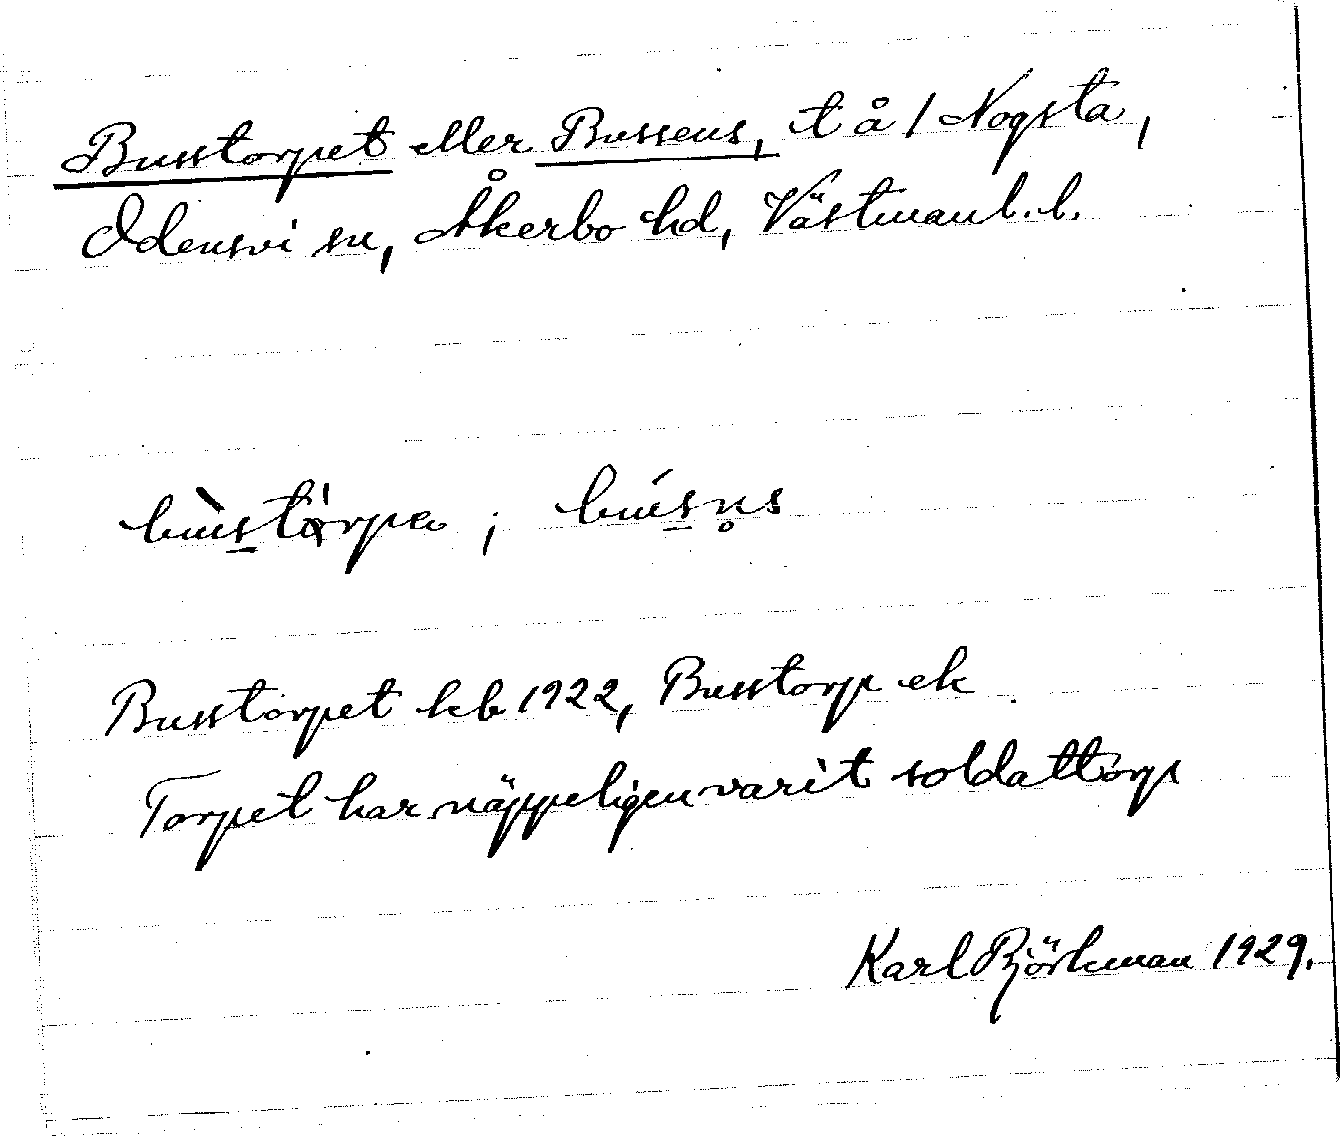 Busstorpet eller Bussens, t å / Nogsta,
Odensvi sn, Åkerbo hd, Västmanl. l.
bùstå̀rpa ; búsn̥s
Busstorpet kb 1922, Busstorp ek
Torpet har näppeligen varit soldattorp
Karl Björkman 1929.